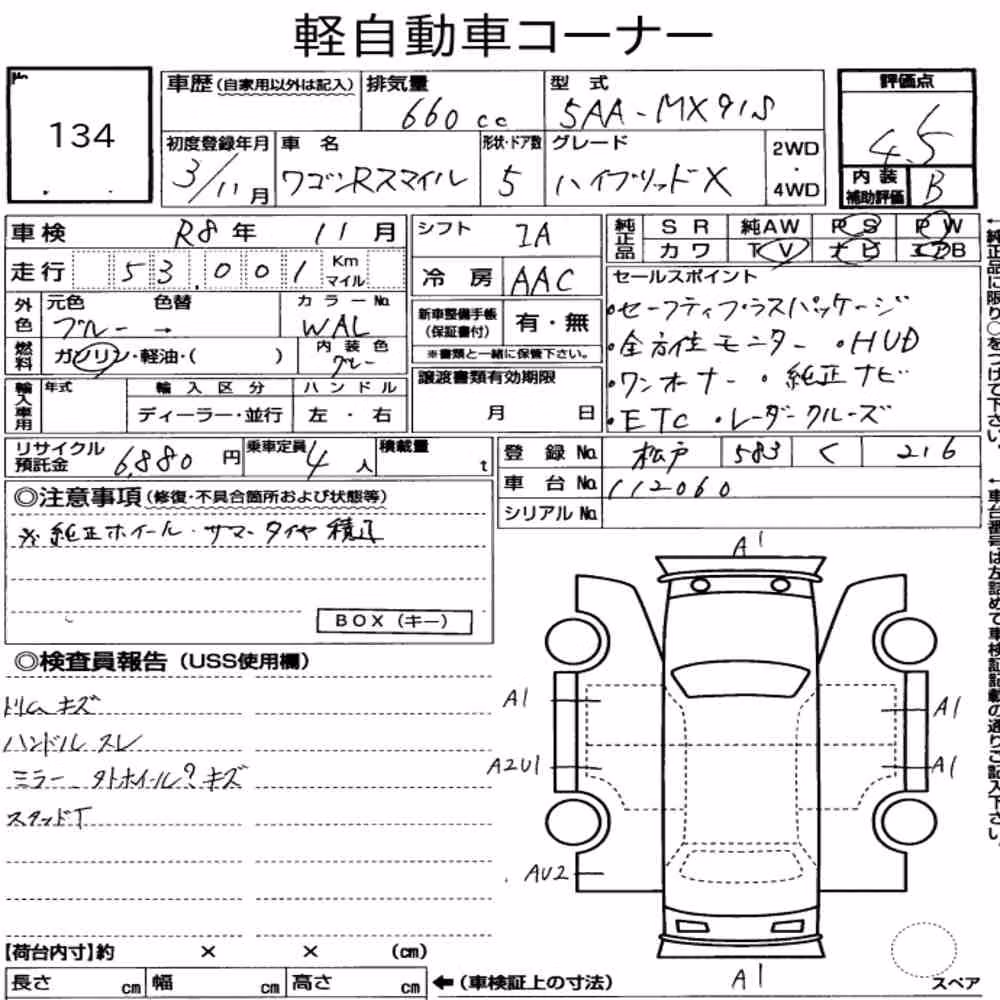 軽自動車コーナー
No.
134
車歴(自家用以外は記入)
排気量
660cc
型式
5AA-MX91S
評価点
4.5
初度登録年月
3/11月
車名
ワゴンRスマイル
形状・ドア数
5
グレード
ハイブリッドX
2WD
・
4WD
内装
補助評価
B
車検 R8年 11月
シフト IA
純正品
SR 純AW PS PW
カワ TV ナビ エアB
走行 53,001 Km
マイル
冷房 AAC
セールスポイント
・セーフティプラスパッケージ
・全方位モニター ・HUD
・ワンオーナー ・純正ナビ
・ETC ・レーダークルーズ
外色
元色 色替
ブルー →
カラーNo.
WAL
新車整備手帳
(保証書付)
有・無
※書類と一緒に保管下さい。
燃料
ガソリン・軽油・( )
内装色
グレー
輸入車用
年式
輸入区分
ディーラー・並行
ハンドル
左・右
譲渡書類有効期限
月 日
リサイクル
預託金
6,880円
乗車定員
4人
積載量
t
登録No. 松戸 583 く 216
車台No. 112060
シリアルNo.
◎注意事項(修復・不具合箇所および状態等)
※純正ホイール・サマータイヤ積込
BOX(キー)
◎検査員報告(USS使用欄)
トリム キズ
ハンドル スレ
ミラー、タトホイール? キズ
スタッドT
A1
A1
A2U1
AU2
A1
A1
A1
スペア
【荷台内寸】約 × × (cm)
長さ cm 幅 cm 高さ cm
←(車検証上の寸法)
←純正品に限り○をつけて下さい。
←車台番号は左詰めで車検証記載の通りご記入下さい。